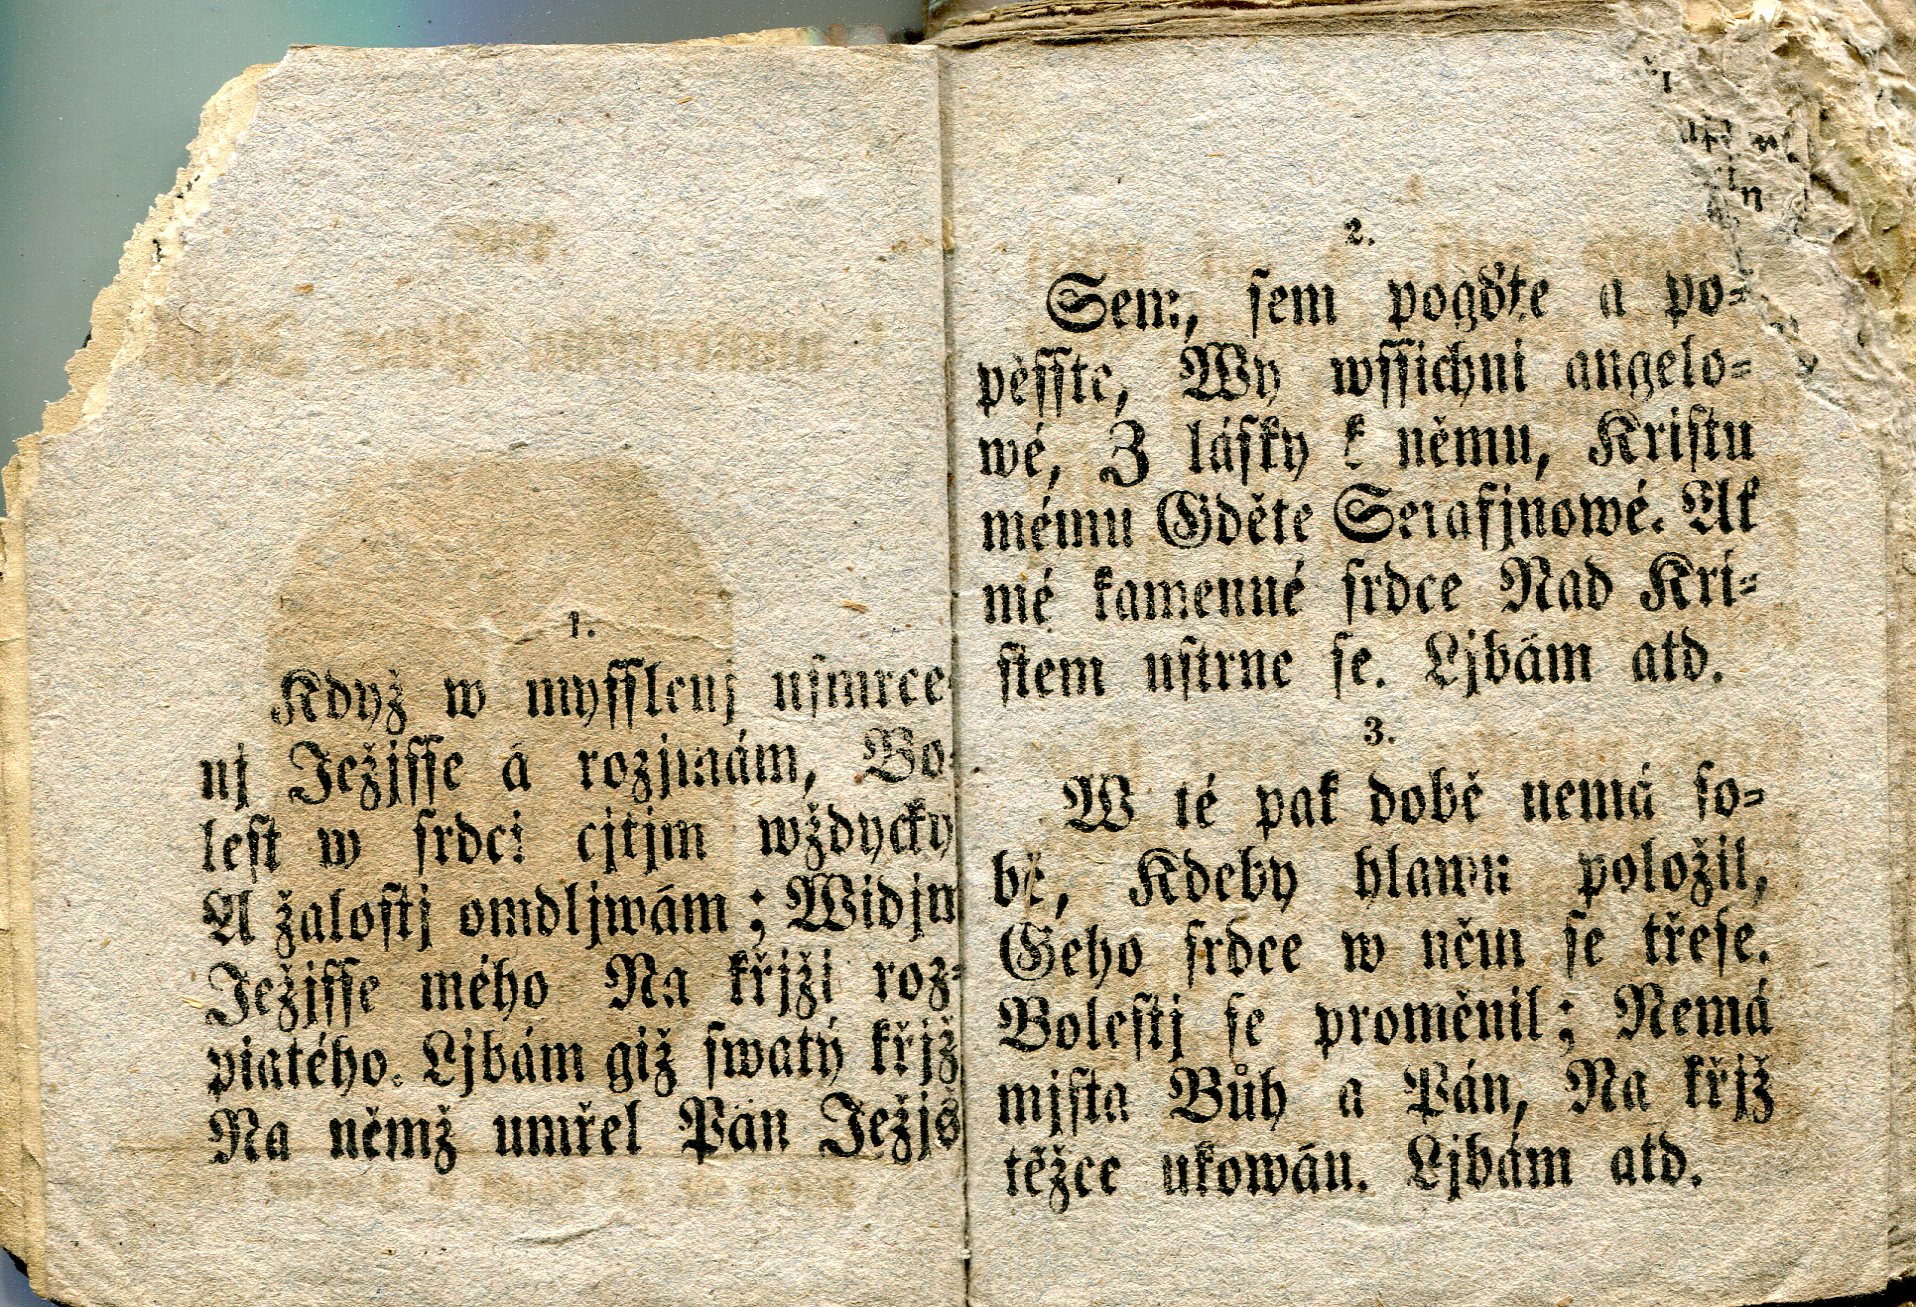 1.
Když w mysslenj usmrce-
nj Ježjsse á rozjmám, Bo-
lest w srdci cjtjm wždycky
A žalostj omdljwám; Widjm
Ježjsse mého Na křjži roz-
piatého. Ljbám giž swatý křjž
Na němž umřel Pán Ježjš
2.
Sem, sem pogďte a po-
pěsste, Wy wssichni angelo-
wé, Z lásky k němu, Kristu
mému Gděte Serafjnowé. Ak
mé kamenné srdce Nad Kri-
stem ustrne se. Ljbám atd.
3.
W té pak době nemá so-
bě, Kdeby hlawu položil,
Geho srdce w něm se třese.
Bolestj se proměnil; Nemá
mjsta Bůh a Pán, Na křjž
těžce ukowán. Ljbám atd.